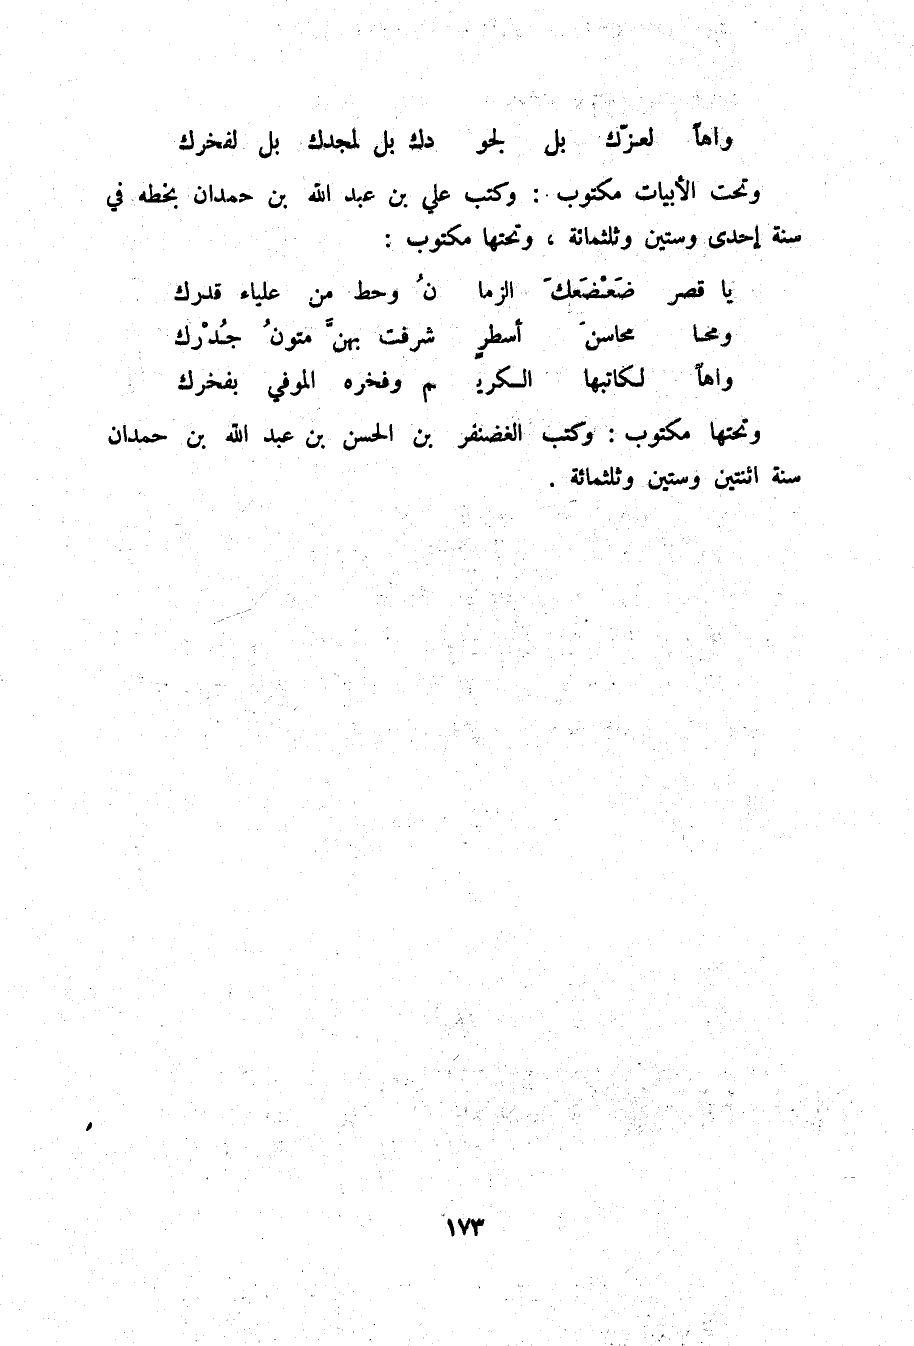 واهاً لعزّك بل لجو دك بل لمجدك بل لفخرك
وتحت الأبيات مكتوب : وكتب علي بن عبد الله بن حمدان بخطه في
سنة إحدى وستين وثلثمائة ، وتحتها مكتوب :
يا قصر ضَعْضَعكَ الزما نُ وحط من علياء قدرك
ومحا محاسنَ أسطرٍ شرفت بهنَّ متونُ جُدْرك
واهاً لكاتبها الكريـ ـم وفخره الموفي بفخرك
وتحتها مكتوب : وكتب الغضنفر بن الحسن بن عبد الله بن حمدان
سنة اثنتين وستين وثلثمائة .
١٧٣